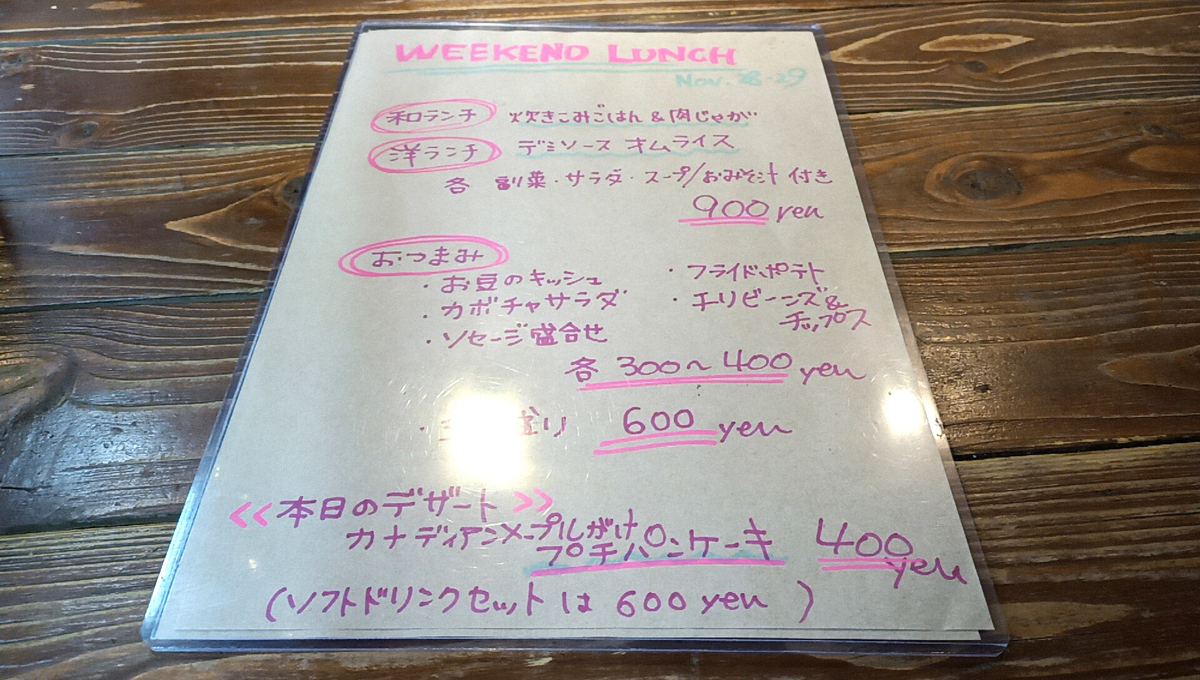 WEEKEND LUNCH
Nov. 28-29
和ランチ 炊きこみごはん&肉じゃが
洋ランチ デミソース オムライス
各 副菜・サラダ・スープ/おみそ汁 付き
900 yen
おつまみ
・お豆のキッシュ ・フライドポテト
・カボチャサラダ ・チリビーンズ&
チップス
・ソセージ盛合せ
各 300〜400 yen
・ 600 yen
<<本日のデザート>>
カナディアンメープルがけ
プチパンケーキ 400
yen
(ソフトドリンクセットは 600 yen )